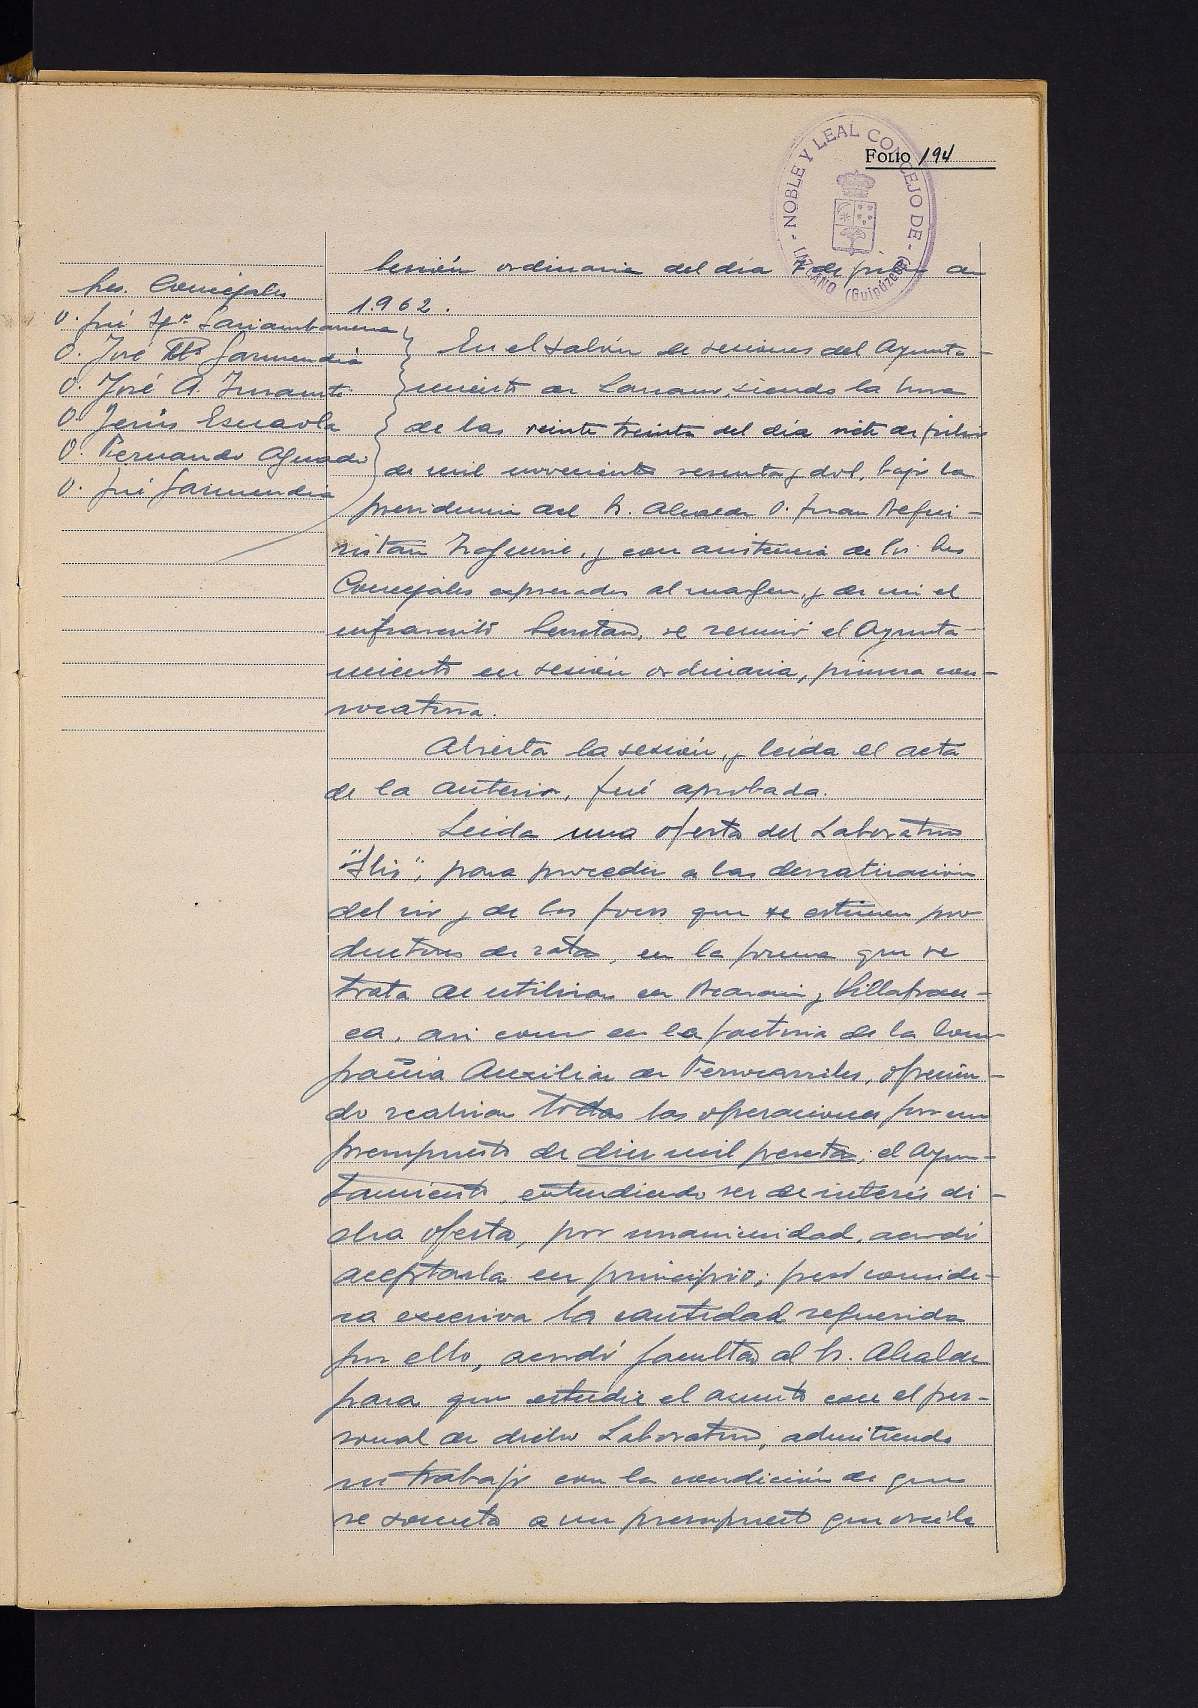 FOLIO 194
- NOBLE Y LEAL CONCEJO DE - LAZCANO (Guipúzcoa)
Sesión ordinaria del día 7 de julio de
1.962.
Sres. Concejales
D. José Mª
D. José Mª Garmendia
D. José A.
D. Jesús Esnaola
D. Fernando Aguado
D. José Garmendia
En el Salón de sesiones del Ayunta-
miento de Lazcano, siendo la hora
de las veinte treinta del día siete de julio
de mil novecientos sesenta y dos, bajo la
presidencia del Sr. Alcalde D. Juan Aegui-
ristain y con asistencia de los Sres
Concejales expresados al margen, y de mi el
infrascrito Secretario, se reunió el Ayunta-
miento en sesión ordinaria, primera con-
vocatoria.
Abierta la sesión, y leída el acta
de la anterior, fué aprobada.
Leida una oferta del Laboratorio
para proceder a las desratización
del rio y de los focos que se estimen pro
ductores de ratas, en la forma que se
trata de utilizar en Beasain y Villafran-
ca, asi como en la factoria de la Com
pañia Auxiliar de Ferrocarriles, ofrecien-
do realizar todas las operaciones por un
presupuesto de diez mil pesetas; el Ayun-
tamiento, entendiendo ser de interés di-
cha oferta, por unanimidad, acordó
aceptarla en principio; pero conside-
ra excesiva la cantidad requerida
por ello, acordó facultar al Sr. Alcalde
para que estudie el asunto con el per-
sonal de dicho Laboratorio, admitiendo
su trabajo con la condición de que
se someta a un presupuesto que oscile